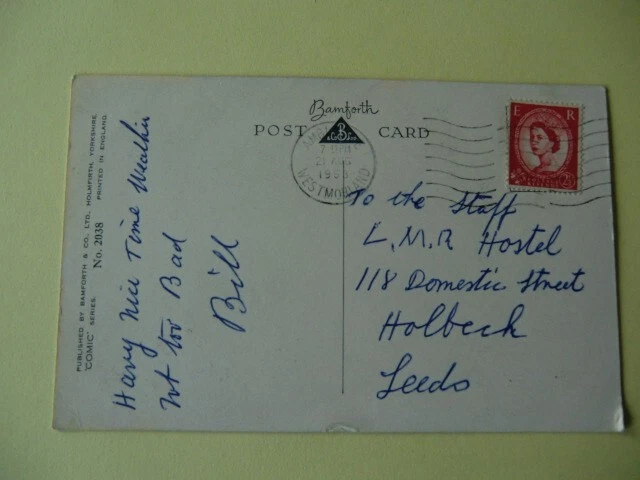 Bamforth
POST CARD
B
WESTMORLAND
E R
PUBLISHED BY BAMFORTH & CO. LTD., HOLMFIRTH, YORKSHIRE.
'COMIC' SERIES. No. 2038 PRINTED IN ENGLAND.
Havy Nice Time Weather
Not too Bad
Bill
To the Staff
L.M.R Hostel
118 Domestic Street
Holbeck
Leeds